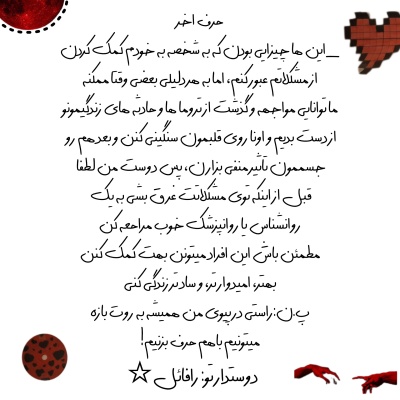 حرف اخر
_این ها چیزایی بودن که به شخصه به خودم کمک کردن
از مشکلاتم عبور کنم، اما به هر دلیلی بعضی وقتا ممکنه
ما توانایی مواجهه و گذشت از تروما ها و حادثه های زندگیمونو
از دست بدیم و اونا روی قلبمون سنگینی کنن و بعد هم رو
جسممون تأثیر منفی بزارن، پس دوست من لطفا
قبل از اینکه توی مشکلاتت غرق بشی به یک
روانشناس یا روانپزشک خوب مراجعه کن
مطمئن باش این افراد میتونن بهت کمک کنن
بهتر، امیدوارتر، و سادتر زندگی کنی
پ.ن: راستی در پیوی من همیشه به روت بازه
میتونیم باهم حرف بزنیم!
دوستدار تو: رافائل ☆